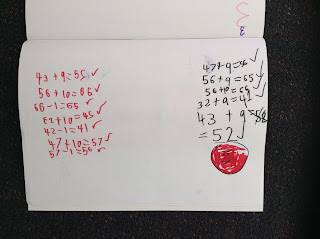 43 + 9 = 55 ✓
56 + 10 = 66 ✓
66 - 1 = 65 ✓
+ 10 = ✓
42 - 1 = 41 ✓
47 + 10 = 57 ✓
57 - 1 = 56 ✓
47 + 9 = 56 ✓
56 + 9 = 65 ✓
56 + 10 = ✓
32 + 9 = 41 ✓
43 + 9 =
= 52 ✓